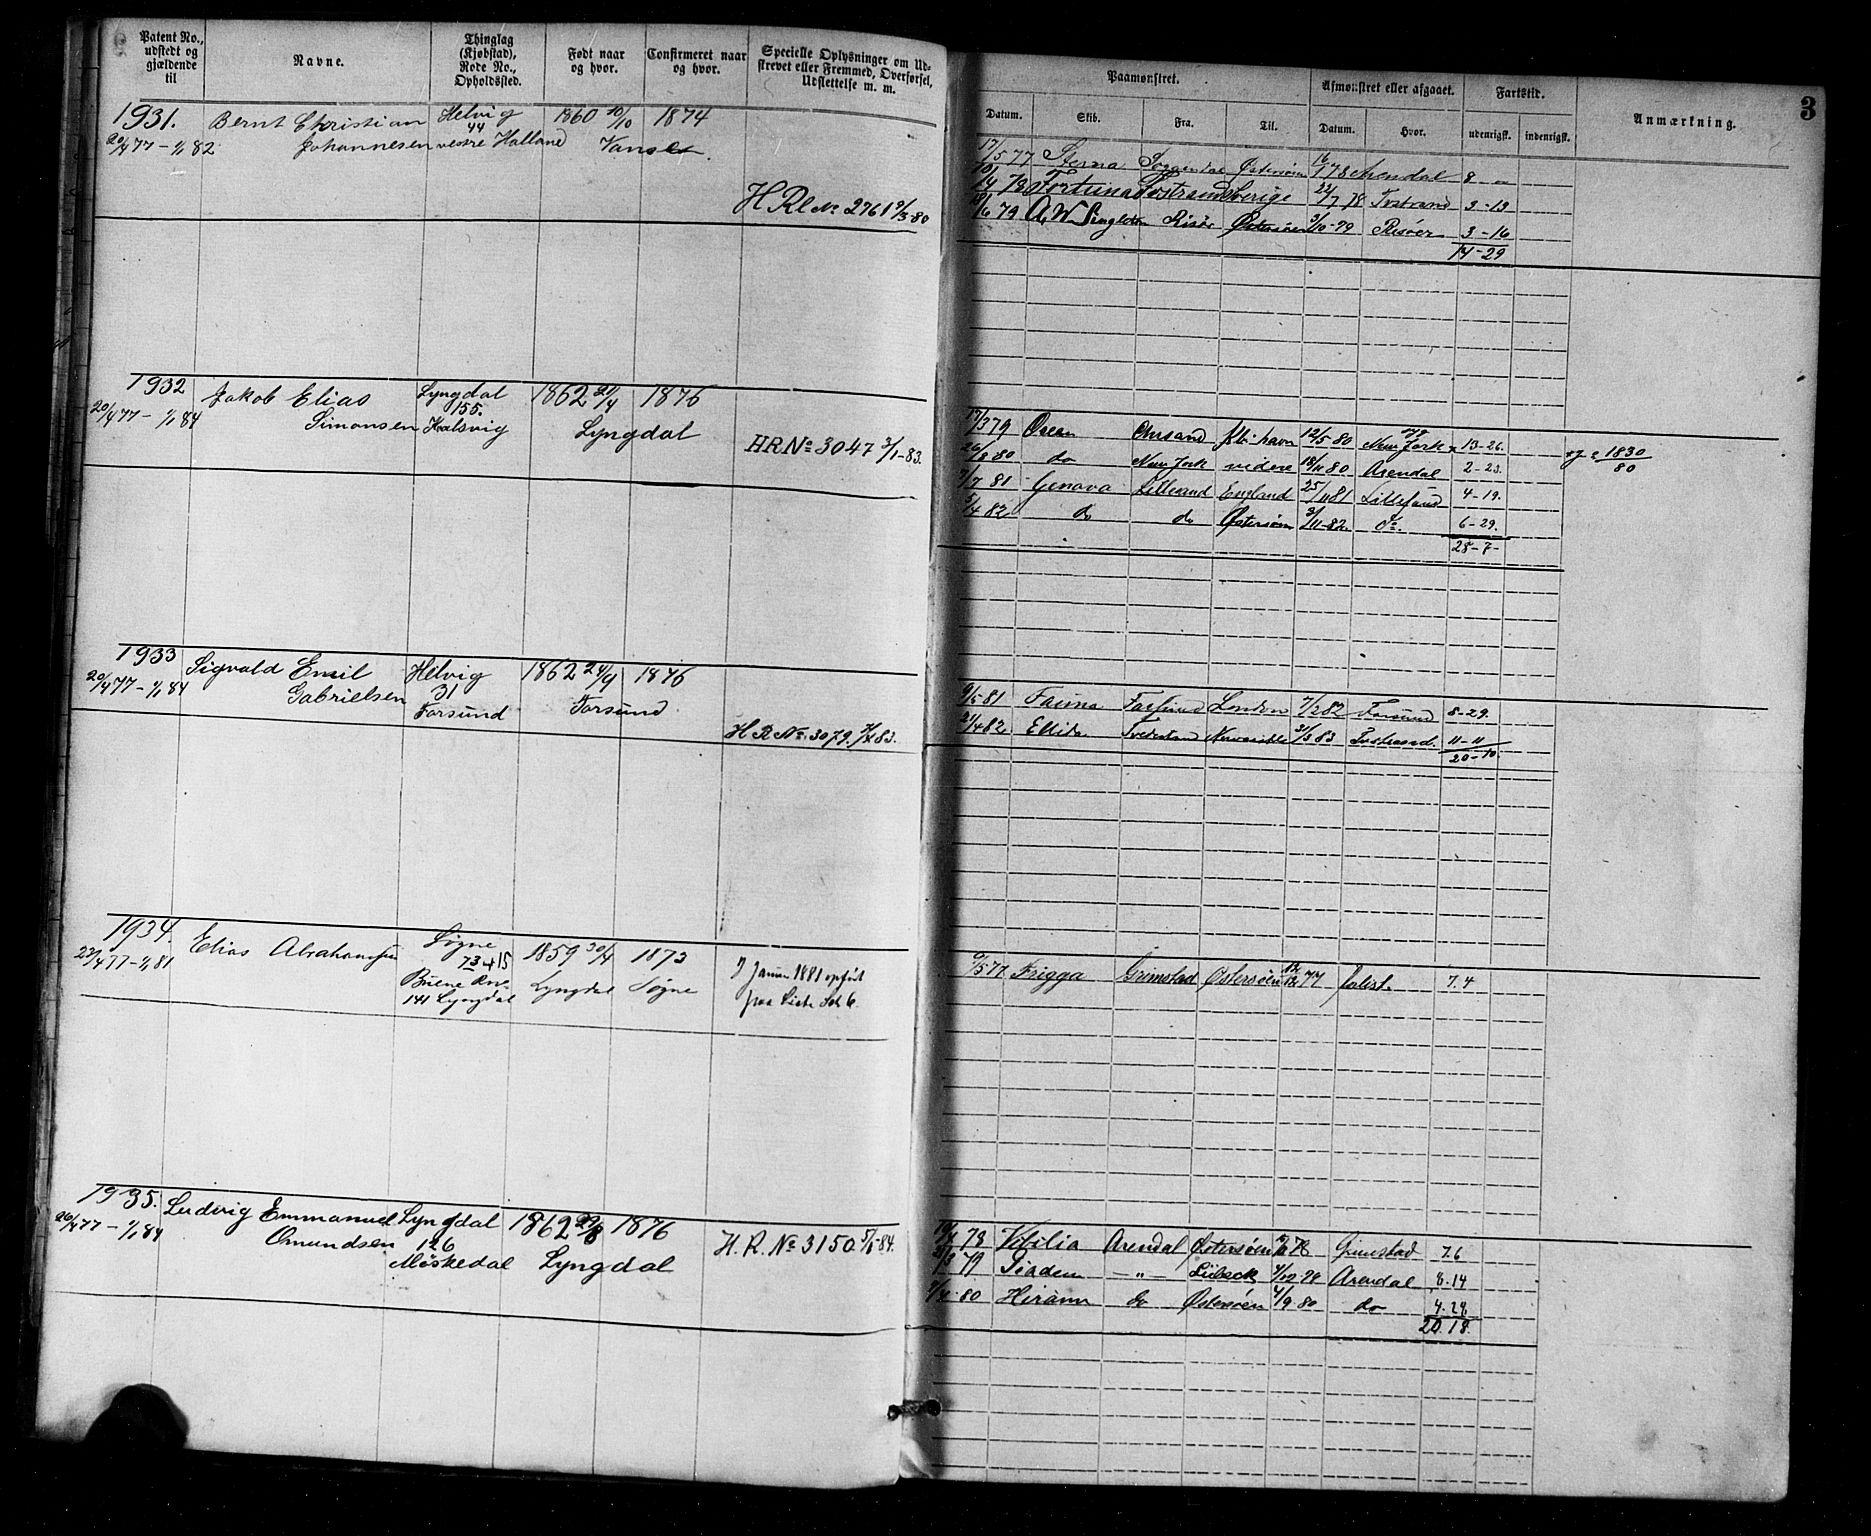 Patent No., udstedt og gjældende til
Navne.
Thinglag (Kjøbstad), Rode No., Opholdssted.
Født naar og hvor.
Confirmeret naar og hvor.
Specielle Oplysninger om Udskrevet eller Fremmed, Overførsel, Udslettelse m. m.
Paamønstret.
Afmønstret eller afgaaet.
Fartstid.
Anmærkning.
3
Datum.
Skib.
Fra.
Til.
Datum.
Hvor.
udenrigst.
indenrigst.
1931. Bernt Christian Helvig 1860 10/10 1874
20/4 77 - 1/1 82 Johannesen 44 vestre Halland Vanse
H Rl No 2761 9/3 80
17/5 77 Sterna Soggendal Østersøen 16/1 78 Arendal 8 - „
10/4 78 Fortuna Tvestrand Sverige 22/7 78 Tvstrand 3-13
18/6 79 A. W. Singleton Risør Østersøen 3/10-79 Risøer 3-16
14-29
1932 Jakob Elias Lyngdal 1862 21/4 1876
20/4 77 - 1/1 84 Simonsen 155. Lyngdal
HR No 3047 3/1-83.
17/3 79 Chrsand 12/5 80 New York 13-26.
26/8 80 do New York videre 18/11 80 Arendal 2-23.
7/7 81 Genova England 25/11 81 4-19.
5/4 82 do do Østersøen 3/11-82 do. 6-29.
28-7-
1830/80
1933 Sigvald Emil Helvig 1862 24/4 1876
20/4 77 - 1/1 84 Gabrielsen 31 Farsund Farsund
H R No. 3079. 83.
9/5 81 Fauna Farsund London 7/2 82 Farsund 8-29.
21/4 82 Ellida 31/3 83 Tvstrand. 11-11
20-10
1934. Elias Abrahamsen Søgne 1859 30/4 1873
23/4 77 - 1/1 81 73 + 15 Lyngdal Søgne
141 Lyngdal
7 Januar 1881 opført paa Liste
5 77 Frigga Grimstad Østersøen 12/12 77 7.4
1935. Ludvig Emmanuel Lyngdal 1862 29/8 1876
26/4 77 - 1/1 84 Omundsen 126 Møskedal Lyngdal
H. R. No 3150 5/1-84.
78 Arendal Østersøen 78 Grimstad 7.6
79 - „ - Lübeck 4/12 79 Arendal 8.14
80 Hiram do Østersøen 4/9 80 do 4.28
20.18.